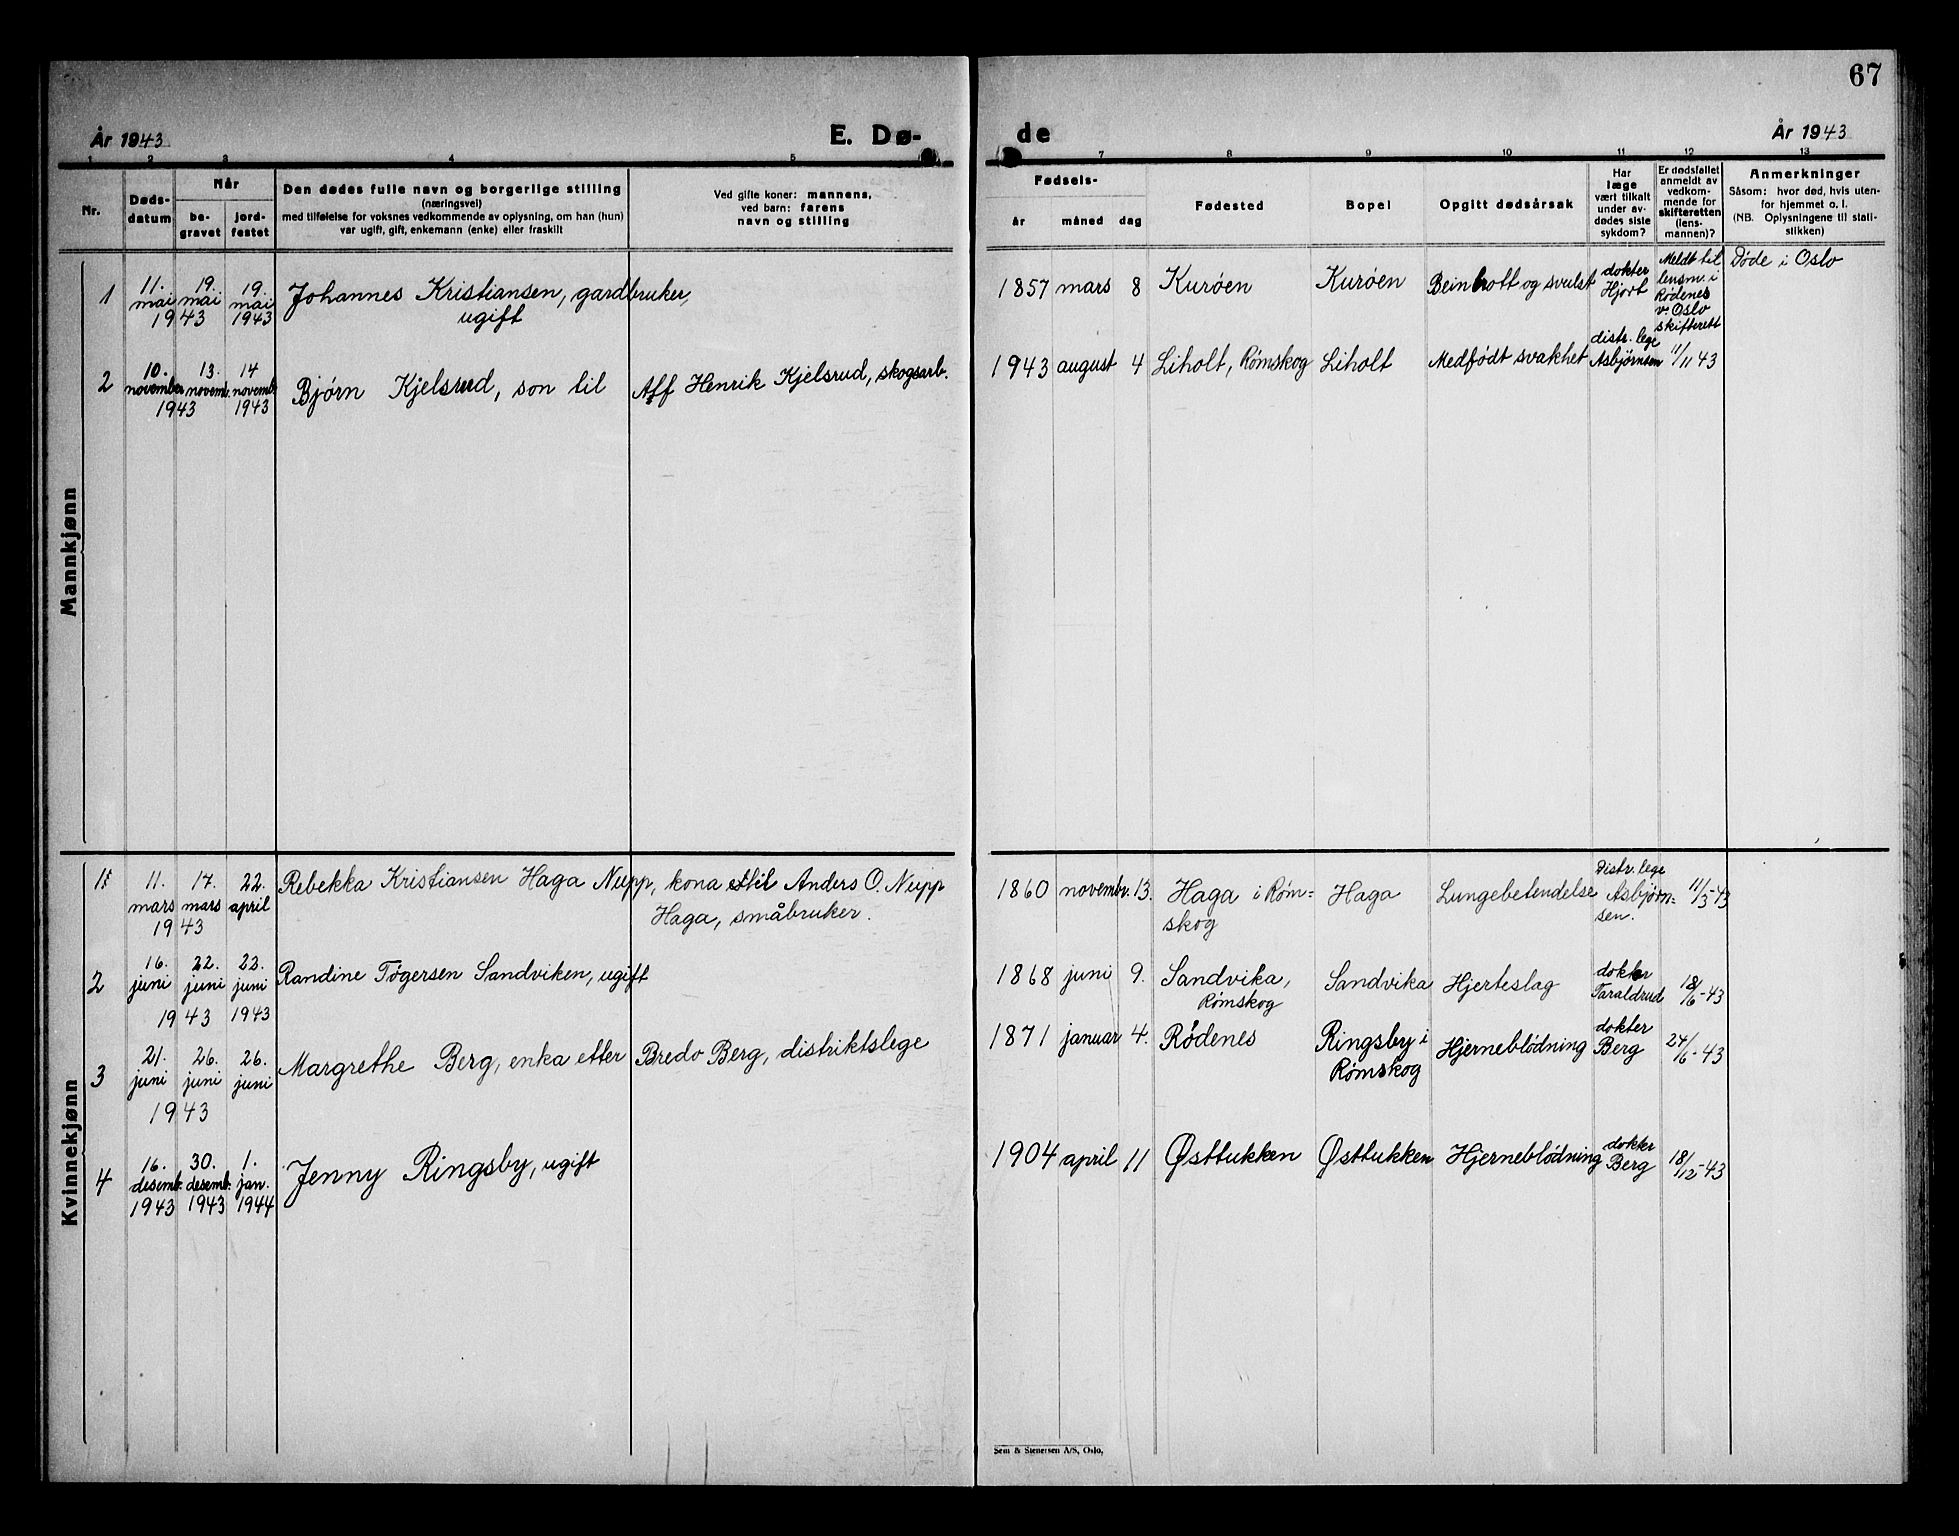 67
År 1943
E. Dø-
de
År 1943
1 2 3 4 5
7 8 9 10 11 12 13
Nr.
Døds-
datum
Når
be-
gravet
jord-
festet
Den dødes fulle navn og borgerlige stilling
(næringsvei)
med tilføielse for voksnes vedkommende av oplysning, om han (hun)
var ugift, gift, enkemann (enke) eller fraskilt
Ved gifte koner: mannens,
ved barn: farens
navn og stilling
Fødsels-
år
måned
dag
Fødested
Bopel
Opgitt dødsårsak
Har
læge
vært tilkalt
under av-
dødes siste
sykdom?
Er dødsfallet
anmeldt av
vedkom-
mende for
skifteretten
(lens-
mannen)?
Anmerkninger
Såsom: hvor død, hvis uten-
for hjemmet o. l.
(NB. Oplysningene til stati-
stikken)
Mannkjønn
1
11.
mai
19.
mai
1943
19.
mai
1943
Johannes Kristiansen, gardbruker,
ugift
1857 mars 8
Kurøen
Kurøen
Beinbrott og svulst
dokter
Hjort
Meldt til
lensm. i
Rødenes
v. Oslo
skifterett
Døde i Oslo
2
10.
november
13.
novemb.
1943
14
novemb.
1943
Bjørn Kjelsrud, son til
Alf Henrik Kjelsrud, skogsarb.
1943 august 4
Liholt, Rømskog
Liholt
Medfødt svakhet
distr. lege
Asbjørnsen
11/11 43
Kvinnekjønn
1
11.
mars
17.
mars
1943
22.
april
Rebekka Kristiansen Haga Nupp, kona til Anders O. Nupp
Haga, småbruker.
1860 novembr. 13.
Haga i Røm=
skog
Haga
Lungebetendelse
Distr. lege
Asbjørn=
sen.
11/3-43
2
16.
juni
22.
juni
1943
23.
juni
1943
Randine Tøgersen Sandviken, ugift
1868 juni 9.
Sandvika,
Rømskog
Sandvika
Hjerteslag
dokter
Taraldrud
18/6-43
3
21.
juni
26.
juni
1943
26.
juni
Margrethe Berg, enka etter
Bredo Berg, distriktslege
1871 januar 4.
Rødenes
Ringsby i
Rømskog
Hjerneblødning
dokter
Berg
24/6-43
4
16.
desemb.
1943
30.
desemb.
1943
1.
jan.
1944
Jenny Ringsby, ugift
1904 april 11
Østtukken
Østtukken
Hjerneblødning
dokter
Berg
18/12-43
Sem & Stenersen A/S, Oslo.